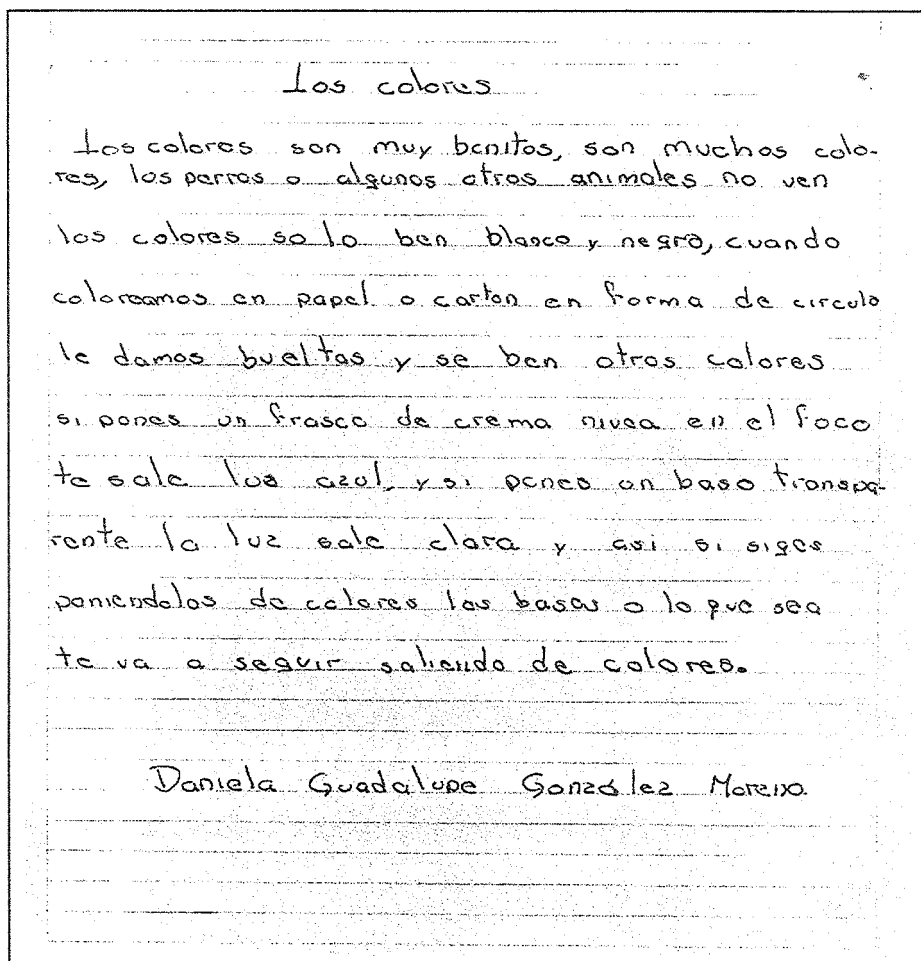 Los colores
Los colores son muy bonitos, son muchos colo-
res, los perros o algunos otros animales no ven
los colores solo ben blanco y negro, cuando
coloreamos en papel o carton en forma de circulo
le damos bueltas y se ben otros colores
si pones un frasco de crema nivea en el foco
te sale lus azul, y si pones un baso transpa-
rente la luz sale clara y asi si siges
poniendolos de colores los basos o lo que sea
te va a seguir saliendo de colores.
Daniela Guadalupe González Moreno.